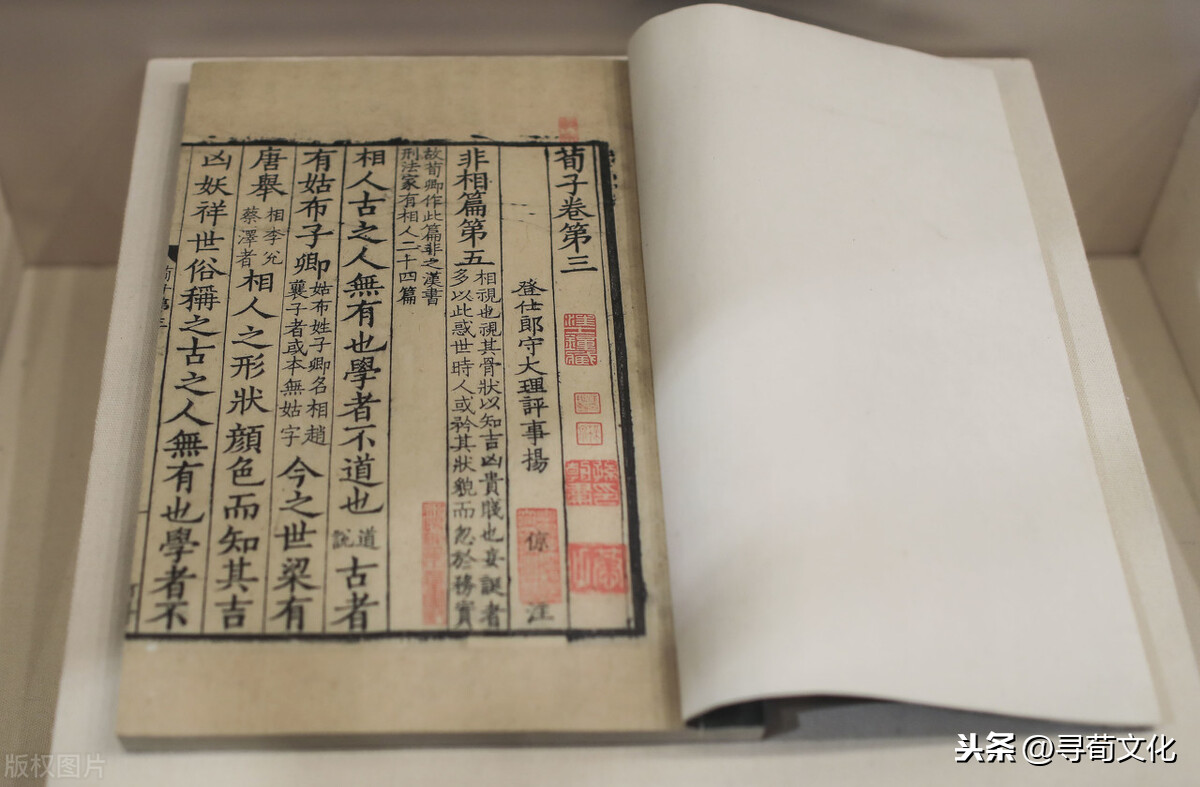 荀子卷第三
登仕郎守大理評事揚倞注
非相篇第五 相視也視其骨狀以知吉凶貴賤也妄誕者
多以此惑世時人或矜其狀貌而忽於務實
故荀卿作此篇非之漢書
刑法家有相人二十四篇
相人古之人無有也學者不道也 道
說 古者
有姑布子卿 姑布姓子卿名相趙
襄子者或本無姑字 今之世梁有
唐舉 相李兊
蔡澤者 相人之形狀顏色而知其吉
凶妖祥世俗稱之古之人無有也學者不
头条 @寻荀文化
版权图片